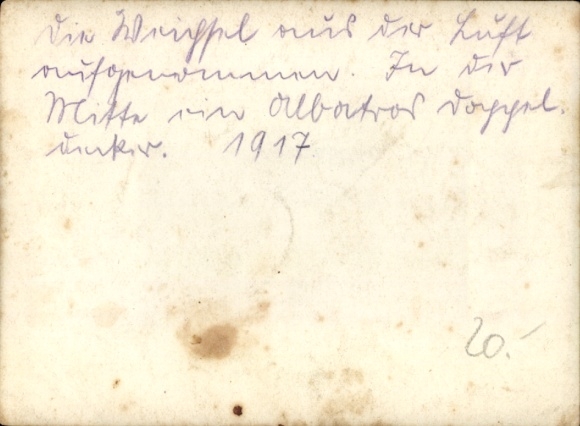 Die Weichsel aus der Luft
aufgenommen. In der
Mitte ein Albatros Doppel-
decker. 1917
20.-